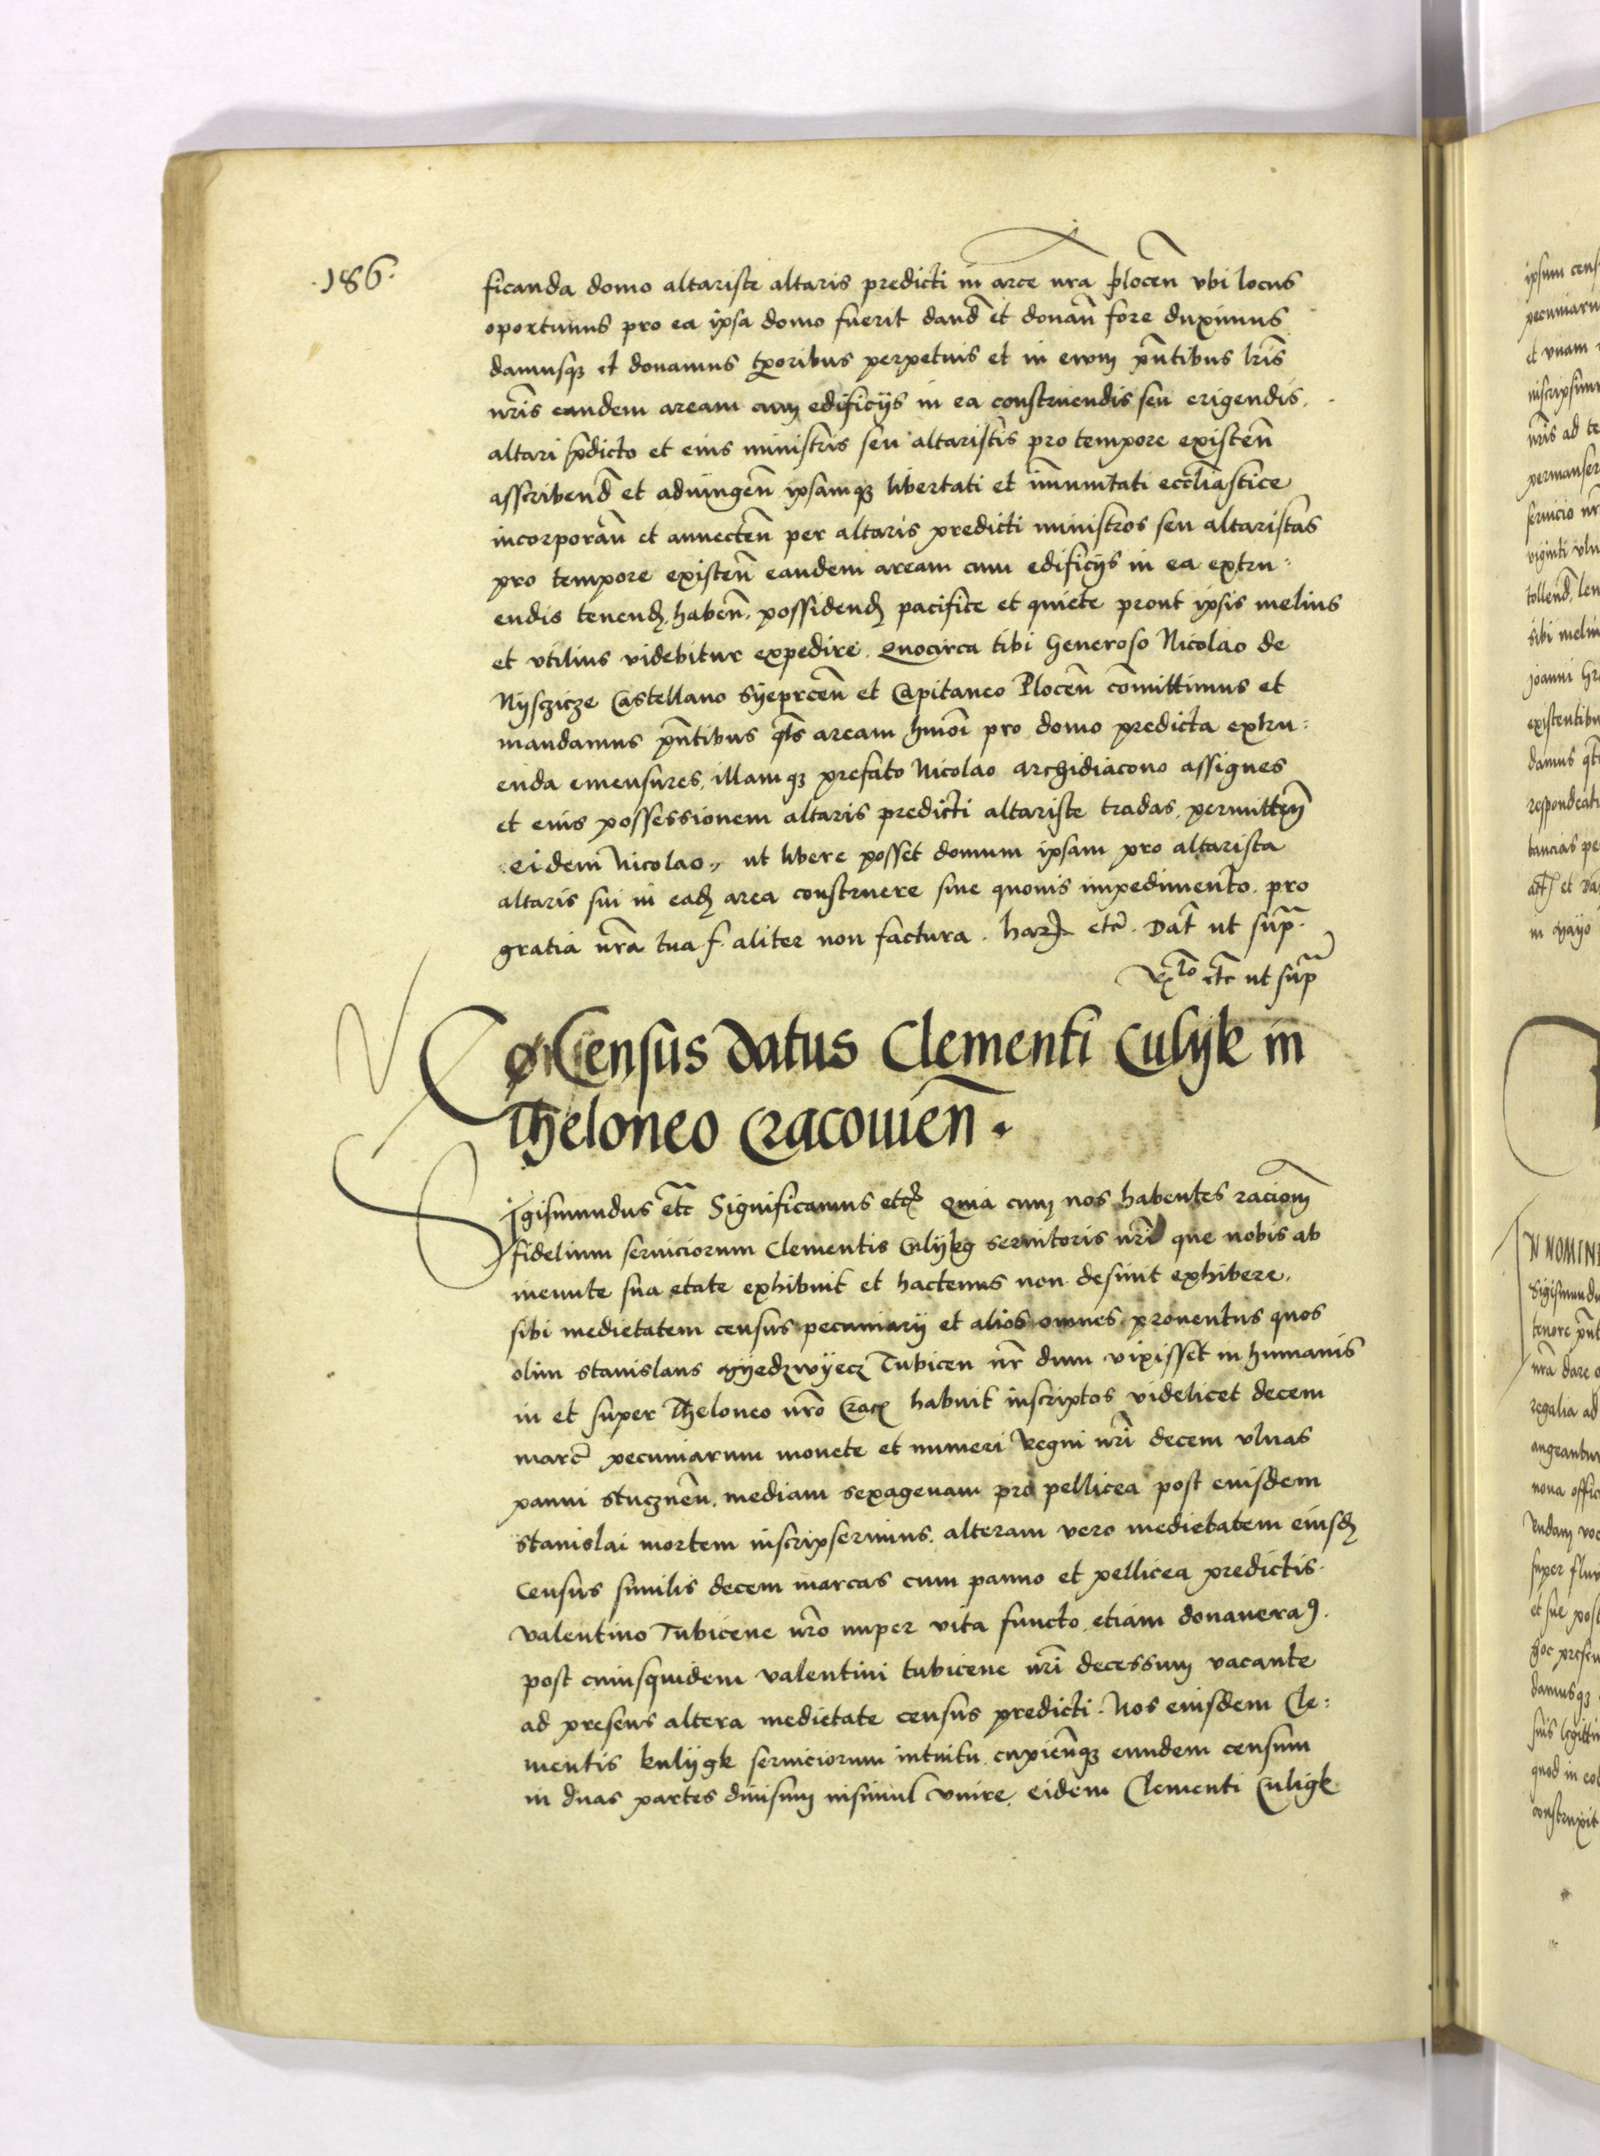 .186.
ficanda domo altariste altaris predicti in arce nra plocen vbi locus
oportunus pro ea ipsa domo fuerit dand et donan fore duximus
damusqz et donamus tporibus perpetuis et in evum pntibus lris
nris eandem aream cum edificijs in ea construendis seu erigendis.
altari pdicto et eius ministris seu altaristis pro tempore existen
asscribend et adiungen ipsamqz libertati et imunitati eccliastice
incorporan et annecten per altaris predicti ministros seu altaristas
pro tempore existen eandem aream cum edificijs in ea extru:
endis tenend, haben, possidend pacifice et quiete prout ipsis melius
et vtilius videbitur expedire. Quocirca tibi Generoso Nicolao de
Nysczicze Castellano Syeprcen et Capitaneo Plocen comittimus et
mandamus pntibus qts aream hmoi pro domo predicta extru:
enda emensures, illamqz prefato Nicolao archidiacono assignes
et eius possessionem altaris predicti altariste tradas, permitten
eidem Nicolao, ut libere posset domum ipsam pro altarista
altaris sui in ead area construere sine quouis impedimento. pro
gratia nra tua f. aliter non factura. har etc. Dat ut sup.
Rto etc ut sup
Census datus Clementi Culijk in
Theloneo Cracouien.
Sigismundus etc Significamus etc Quia cum nos habentes racionem
fidelium seruiciorum Clementis Culijkg seruitoris nri que nobis ab
ineunte sua etate exhibuit et hactenus non desinit exhibere,
sibi medietatem census pecuniarij et alios omnes prouentus quos
olim Stanislaus Nyedzwyecz Tubicen nr dum vixisset in humanis
in et super Theloneo nro Crac habuit inscriptos videlicet decem
marc pecuniarum monete et numeri Regni nri decem vlnas
panni stucznen, mediam sexagenam pro pellicea post eiusdem
Stanislai mortem inscripserimus. alteram vero medietatem eiusd
Census similis decem marcas cum panno et pellicea predictis.
Valentino Tubicene nro nuper vita functo etiam donauera9.
post cuiusquidem Valentini tubicene nri decessum vacante
ad presens altera medietate census predicti. Nos eiusdem Cle:
mentis kulijgk seruiciorum intuitu cupienqz eundem censum
in duas partes diuisum insimul vnire, eidem Clementi Culigk